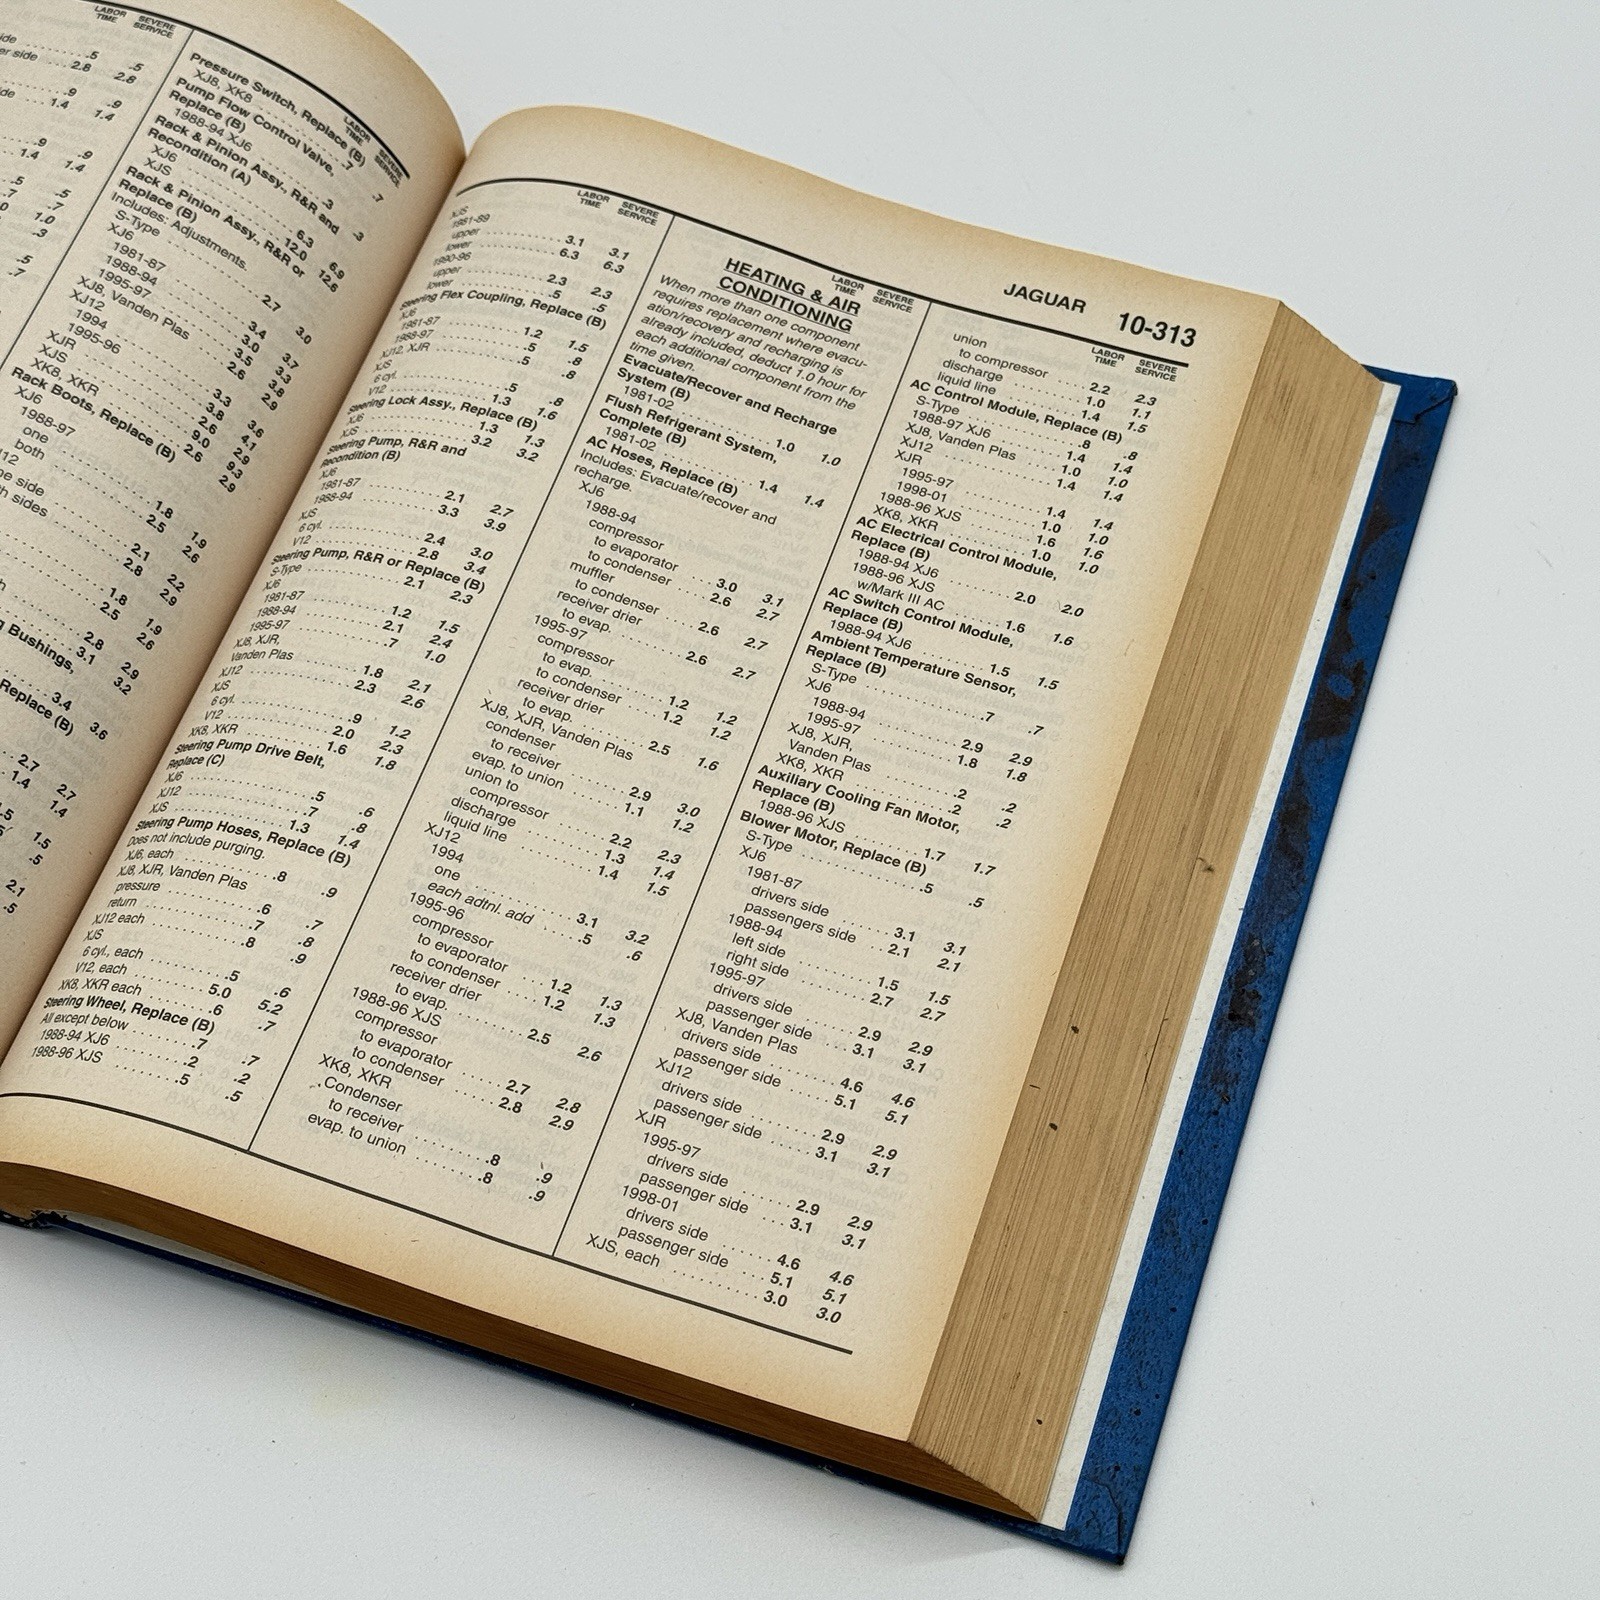 LABOR TIME SEVERE SERVICE
ide .5 .5
er side 2.8 2.8
.9 .9
ide 1.4 1.4
.9 .9
1.4 1.4
.5 .5
.7 .7
1.0
.3
.5
.7
LABOR TIME SEVERE SERVICE
Pressure Switch, Replace (B)
XJ8, XK8 .7 .7
Pump Flow Control Valve,
Replace (B)
1988-94 XJ6 .3 .3
Rack & Pinion Assy., R&R and
Recondition (A)
XJ6 6.3 6.9
XJS 12.0 12.6
Rack & Pinion Assy., R&R or
Replace (B)
Includes: Adjustments.
S-Type 2.7 3.0
XJ6
1981-87 3.4 3.7
1988-94 3.0 3.3
1995-97 3.5 3.8
XJ8, Vanden Plas 2.6 2.9
XJ12
1994 3.3 3.6
1995-96 3.8 4.1
XJR 2.6 2.9
XJS 9.0 9.3
XK8, XKR 2.6 2.9
Rack Boots, Replace (B)
XJ6
1988-97
one 1.8 1.9
both 2.5 2.6
12
ne side 2.1 2.2
h sides 2.8 2.9
1.8 1.9
2.5 2.6
2.8 2.9
3.1 3.2
g Bushings,
3.4 3.6
Replace (B)
2.7 2.7
1.4 1.4
1.5
.5
2.1
.5
JAGUAR 10-313
LABOR TIME SEVERE SERVICE
XJS
1981-89
upper 3.1 3.1
lower 6.3 6.3
1990-96
upper 2.3 2.3
lower .5 .5
Steering Flex Coupling, Replace (B)
XJ6
1981-87 1.2 1.5
1988-97 .5 .8
XJ12, XJR .5 .8
XJS
6 cyl. .5 .8
V12 1.3 1.6
Steering Lock Assy., Replace (B)
XJ6 1.3 1.3
XJS 3.2 3.2
Steering Pump, R&R and
Recondition (B)
XJ6
1981-87 2.1 2.7
1988-94 3.3 3.9
XJS
6 cyl. 2.4 3.0
V12 2.8 3.4
Steering Pump, R&R or Replace (B)
S-Type 2.1 2.3
XJ6
1981-87 1.2 1.5
1988-94 2.1 2.4
1995-97 .7 1.0
XJ8, XJR,
Vanden Plas 1.8 2.1
XJ12 2.3 2.6
XJS
6 cyl. .9 1.2
V12 2.0 2.3
XK8, XKR 1.6 1.8
Steering Pump Drive Belt,
Replace (C)
XJ6 .5 .6
XJ12 .7 .8
XJS 1.3 1.4
Steering Pump Hoses, Replace (B)
Does not include purging.
XJ6, each .8 .9
XJ8, XJR, Vanden Plas
pressure .6 .7
return .7 .8
XJ12 each .8 .9
XJS
6 cyl., each .5 .6
V12, each 5.0 5.2
XK8, XKR each .6 .7
Steering Wheel, Replace (B)
All except below .7 .7
1988-94 XJ6 .2 .2
1988-96 XJS .5 .5
LABOR TIME SEVERE SERVICE
HEATING & AIR
CONDITIONING
When more than one component
requires replacement where evacu-
ation/recovery and recharging is
already included, deduct 1.0 hour for
each additional component from the
time given.
Evacuate/Recover and Recharge
System (B)
1981-02 1.0 1.0
Flush Refrigerant System,
Complete (B)
1981-02 1.4 1.4
AC Hoses, Replace (B)
Includes: Evacuate/recover and
recharge.
XJ6
1988-94
compressor
to evaporator 3.0 3.1
to condenser 2.6 2.7
muffler
to condenser 2.6 2.7
receiver drier
to evap. 2.6 2.7
1995-97
compressor
to evap. 1.2 1.2
to condenser 1.2 1.2
receiver drier
to evap. 2.5 1.6
XJ8, XJR, Vanden Plas
condenser
to receiver 2.9 3.0
evap. to union 1.1 1.2
union to
compressor 2.2 2.3
discharge 1.3 1.4
liquid line 1.4 1.5
XJ12
1994
one 3.1 3.2
each adtnl. add .5 .6
1995-96
compressor
to evaporator 1.2 1.3
to condenser 1.2 1.3
receiver drier
to evap. 2.5 2.6
1988-96 XJS
compressor
to evaporator 2.7 2.8
to condenser 2.8 2.9
XK8, XKR
Condenser
to receiver .8 .9
evap. to union .8 .9
LABOR TIME SEVERE SERVICE
union
to compressor 2.2 2.3
discharge 1.0 1.1
liquid line 1.4 1.5
AC Control Module, Replace (B)
S-Type .8 .8
1988-97 XJ6 1.4 1.4
XJ8, Vanden Plas 1.0 1.0
XJ12 1.4 1.4
XJR
1995-97 1.4 1.4
1998-01 1.0 1.0
1988-96 XJS 1.6 1.6
XK8, XKR 1.0 1.0
AC Electrical Control Module,
Replace (B)
1988-94 XJ6 2.0 2.0
1988-96 XJS
w/Mark III AC 1.6 1.6
AC Switch Control Module,
Replace (B)
1988-94 XJ6 1.5 1.5
Ambient Temperature Sensor,
Replace (B)
S-Type .7 .7
XJ6
1988-94 2.9 2.9
1995-97 1.8 1.8
XJ8, XJR,
Vanden Plas .2 .2
XK8, XKR .2 .2
Auxiliary Cooling Fan Motor,
Replace (B)
1988-96 XJS 1.7 1.7
Blower Motor, Replace (B)
S-Type .5 .5
XJ6
1981-87
drivers side 3.1 3.1
passengers side 2.1 2.1
1988-94
left side 1.5 1.5
right side 2.7 2.7
1995-97
drivers side 2.9 2.9
passenger side 3.1 3.1
XJ8, Vanden Plas
drivers side 4.6 4.6
passenger side 5.1 5.1
XJ12
drivers side 2.9 2.9
passenger side 3.1 3.1
XJR
1995-97
drivers side 2.9 2.9
passenger side 3.1 3.1
1998-01
drivers side 4.6 4.6
passenger side 5.1 5.1
XJS, each 3.0 3.0